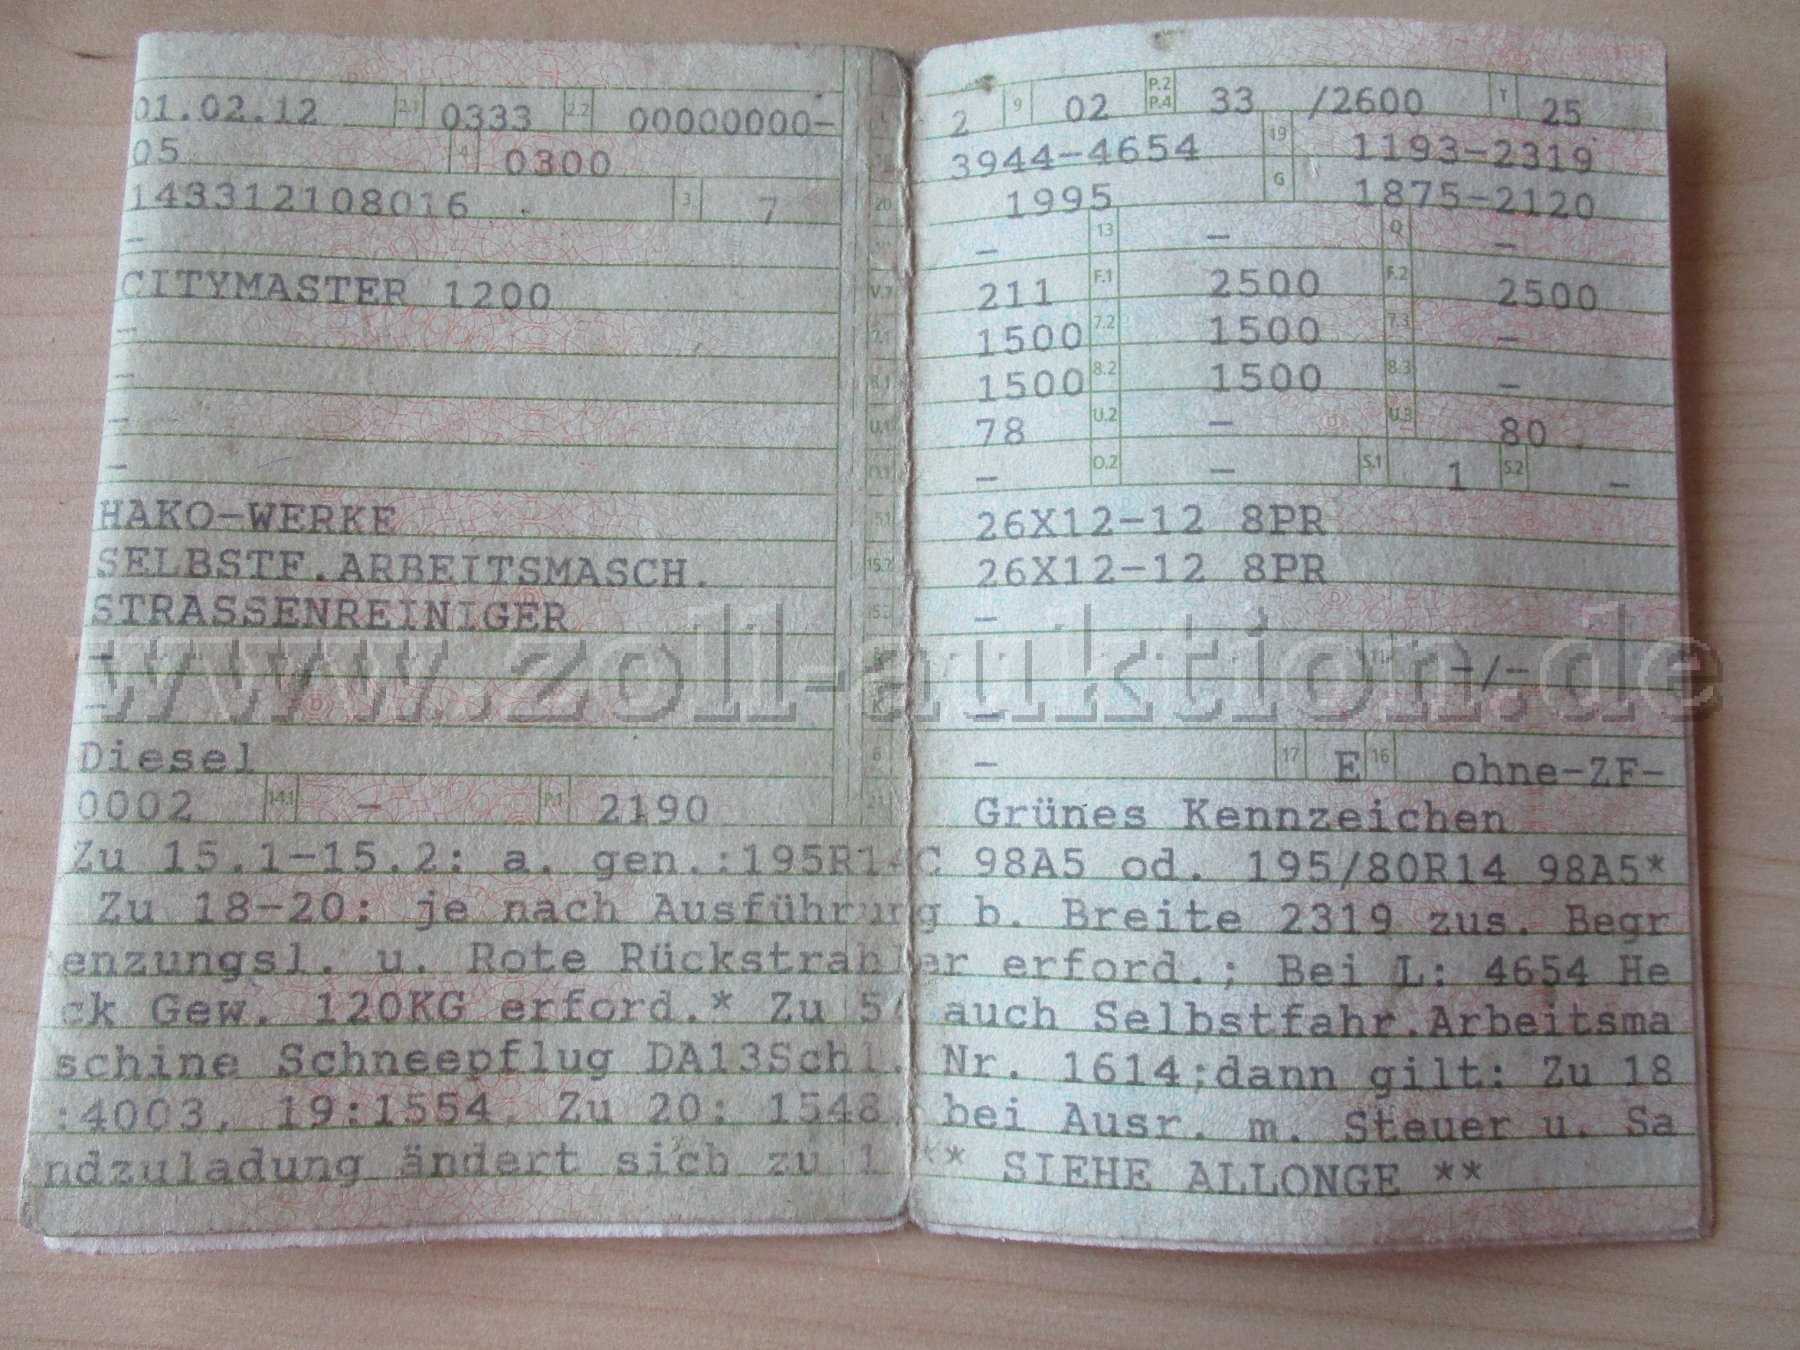 01.02.12 2.1 0333 2.2 00000000-
05 4 0300
143312108016 3 7
-
CITYMASTER 1200
-
-
-
-
HAKO-WERKE
SELBSTF.ARBEITSMASCH.
STRASSENREINIGER
-
-
Diesel
0002 14.1 - P.1 2190
20
V.7
7.1
8.1
U.1
O.1
15.1
15.2
15.3
R
K
6
21
2 9 02 P.2 P.4 33 /2600 T 25
3944-4654 19 1193-2319
1995 G 1875-2120
- 13 - Q -
211 F.1 2500 F.2 2500
1500 7.2 1500 7.3 -
1500 8.2 1500 8.3 -
78 U.2 - U.3 80
- O.2 - S.1 1 S.2 -
26X12-12 8PR
26X12-12 8PR
-
11 -/-
-
- 17 E 16 ohne-ZF-
Grünes Kennzeichen
Zu 15.1-15.2: a. gen.:195R14C 98A5 od. 195/80R14 98A5*
Zu 18-20: je nach Ausführung b. Breite 2319 zus. Begr
enzungsl. u. Rote Rückstrahler erford.; Bei L: 4654 He
ck Gew. 120KG erford.* Zu 5: auch Selbstfahr.Arbeitsma
schine Schneepflug DA13Schl. Nr. 1614;dann gilt: Zu 18
:4003, 19:1554, Zu 20: 1548, bei Ausr. m. Steuer u. Sa
ndzuladung ändert sich zu 1 ** SIEHE ALLONGE **
www.zoll-auktion.de